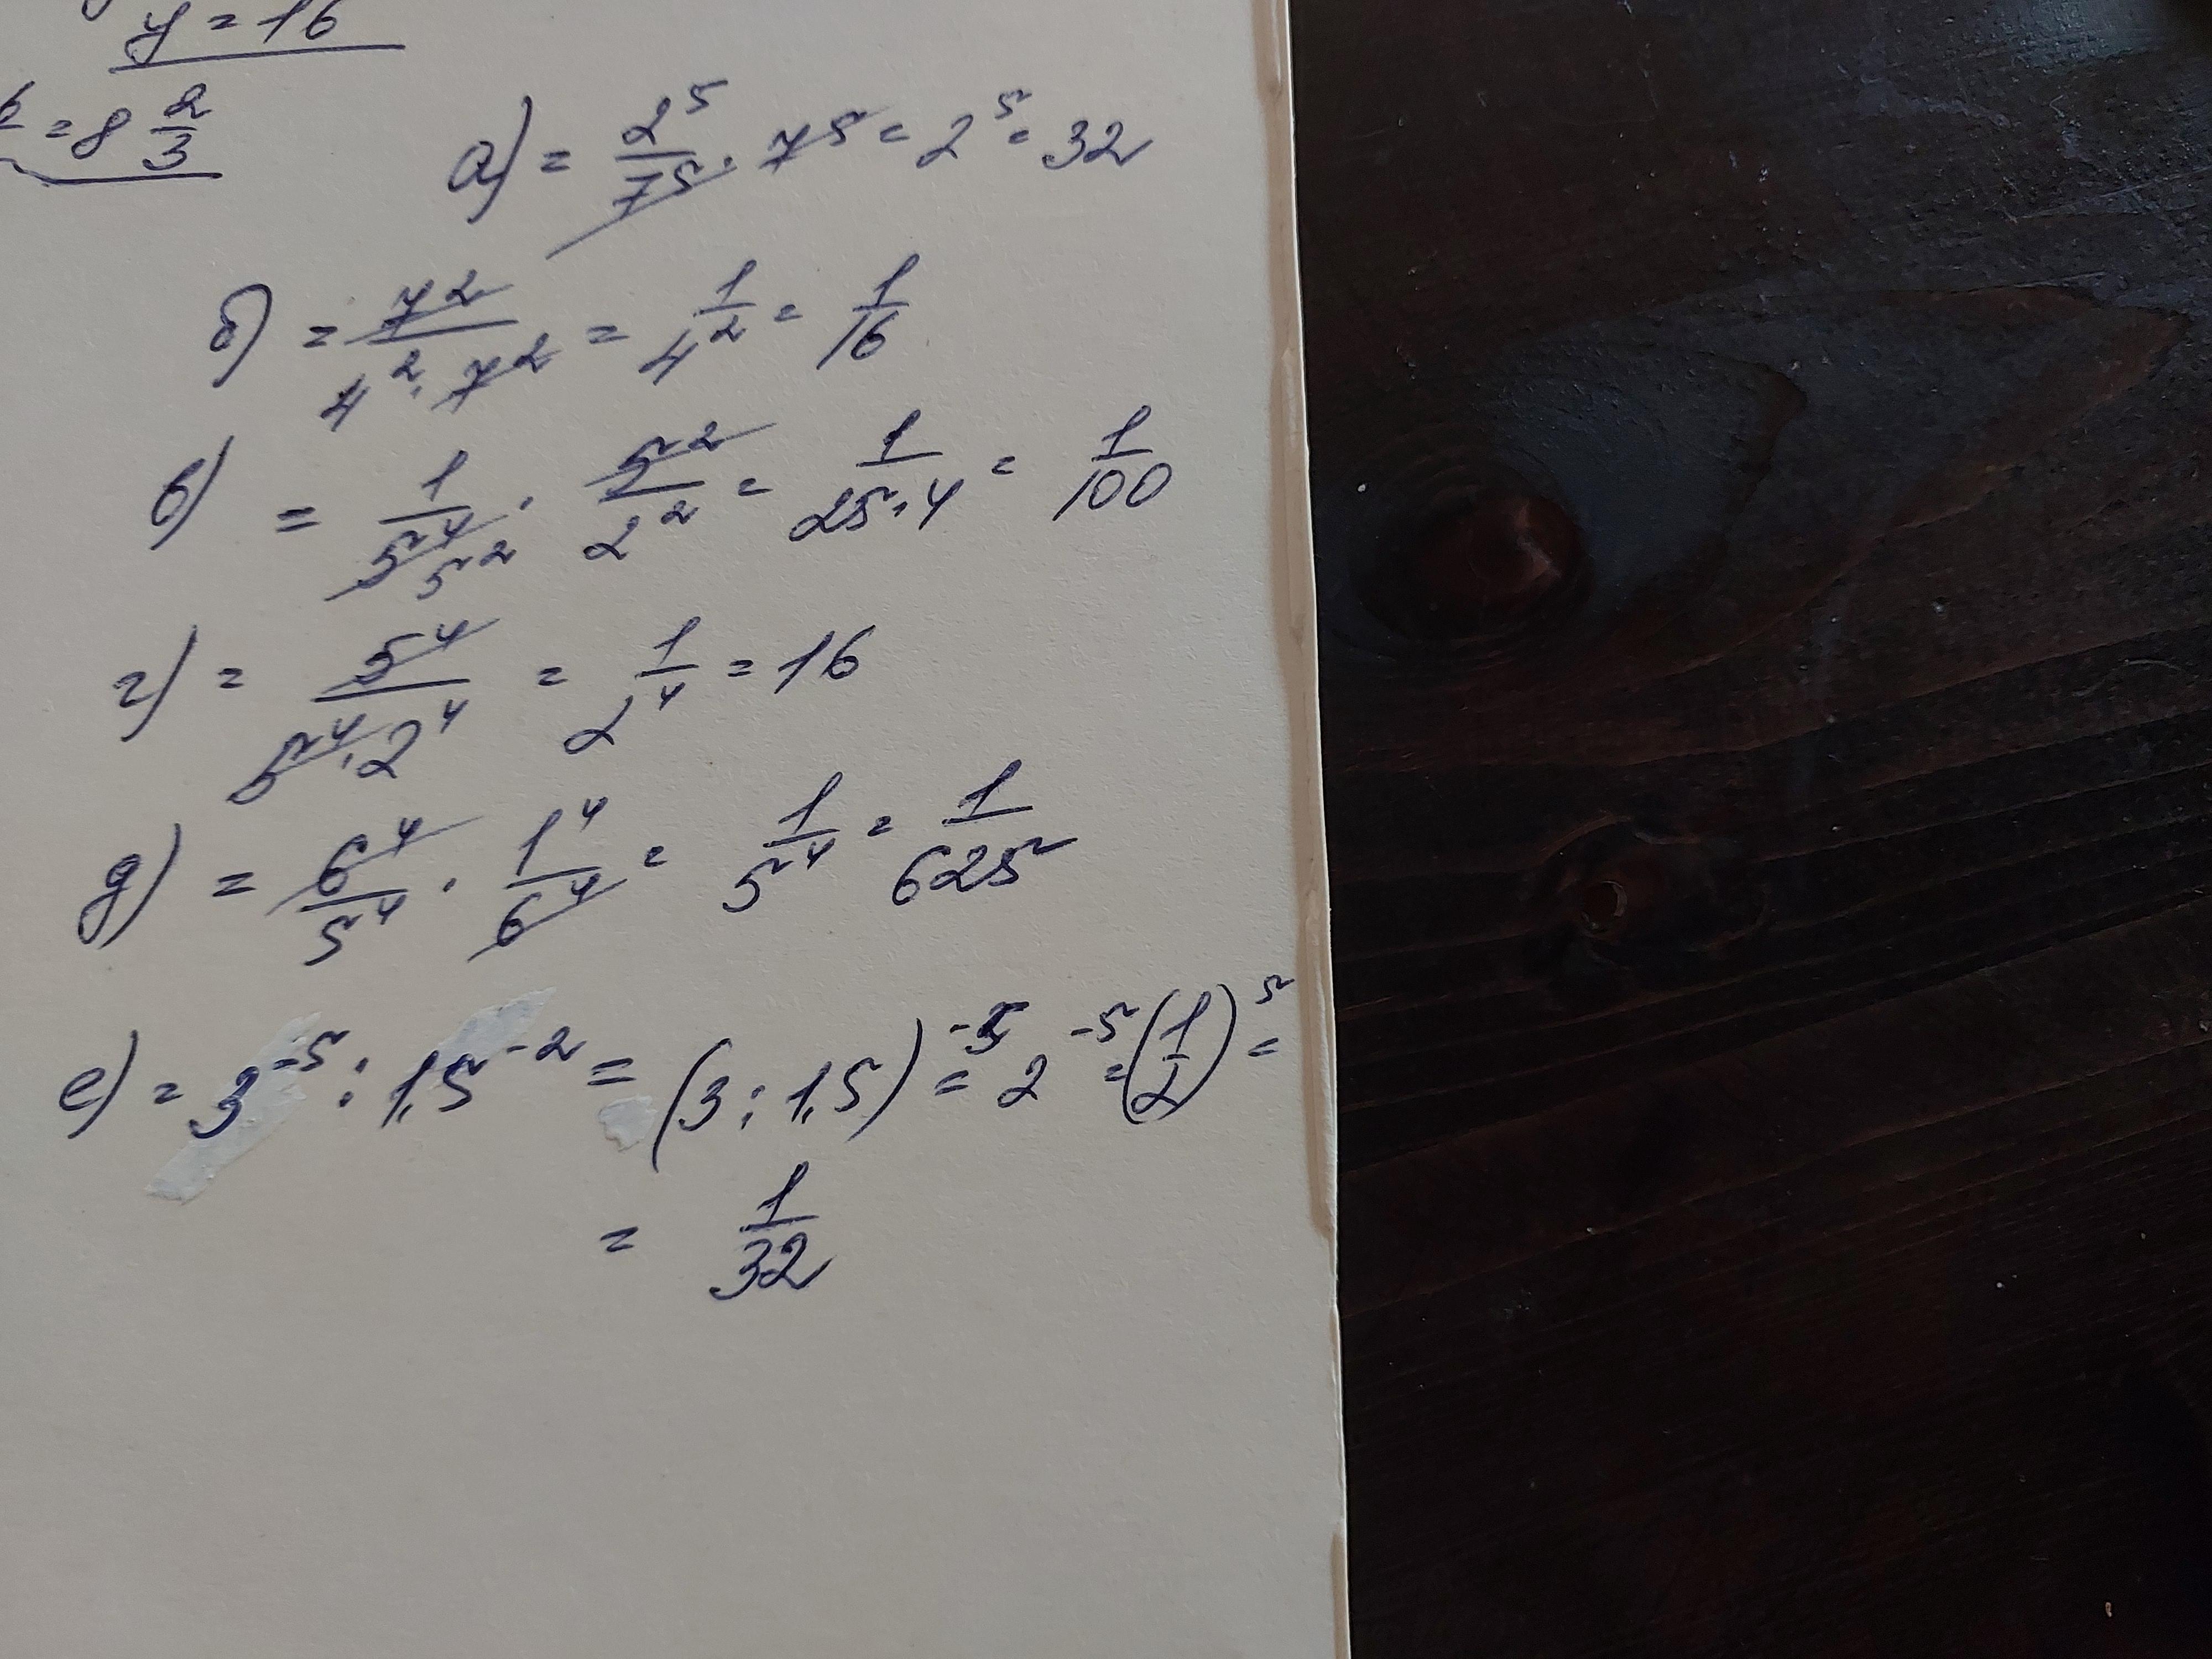 y = 16
= 8 2/3
а) = 2^5/7^5 · 7^5 = 2^5 = 32
б) = 7^2/(4^2 · 7^2) = 1/4^2 = 1/16
в) = 1/5^4 5^2 · 5^2/2^2 = 1/(25·4) = 1/100
г) = 5^4/(5^4 · 2^4) = 1/2^4 = 16
д) = 6^4/5^4 · 1^4/6^4 = 1/5^4 = 1/625
е) = 3^-5 : 1,5^-2 = (3 : 1,5)^-5 = 2^-5 = (1/2)^5 =
= 1/32